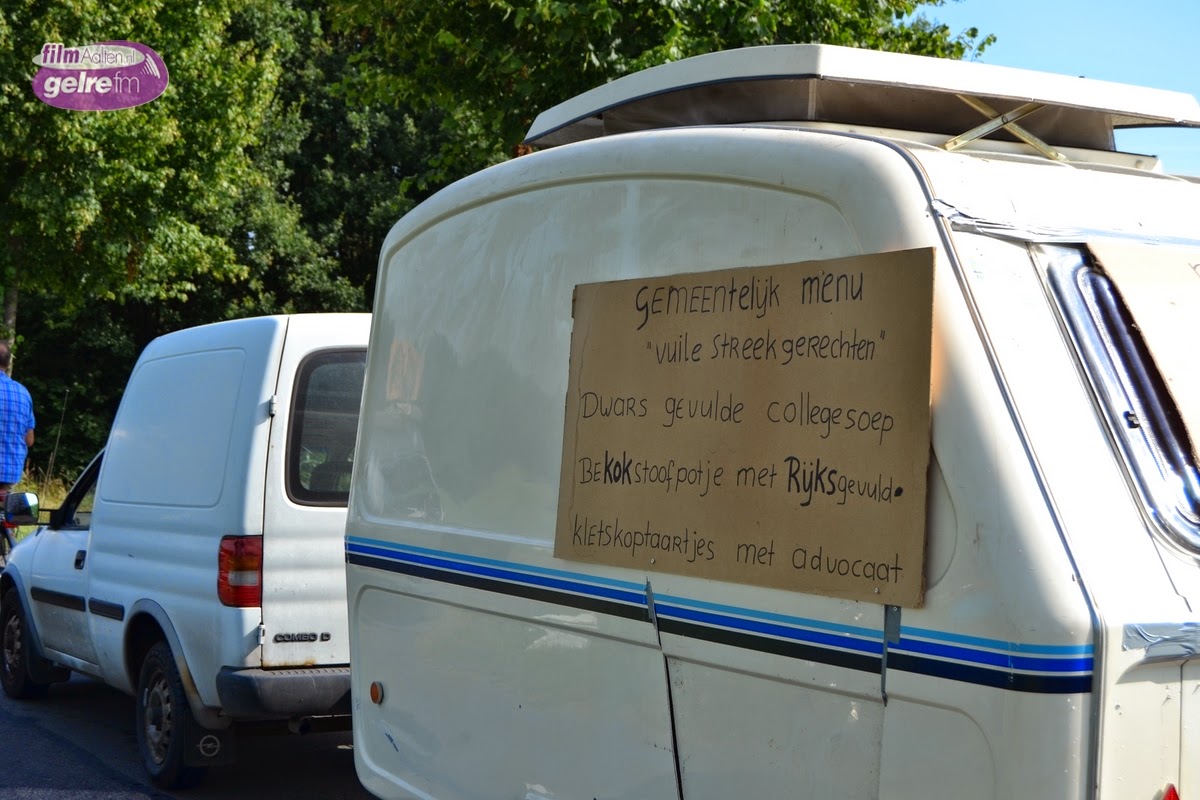 filmAalten.nl
gelrefm
GEMEENTELIJK MENU
"VUILE STREEKGERECHTEN"
DWARS GEVULDE COLLEGESOEP
BEKOKSTOOFPOTJE MET RIJKSGEVULD.
KLETSKOPTAARTJES MET ADVOCAAT
COMBO D